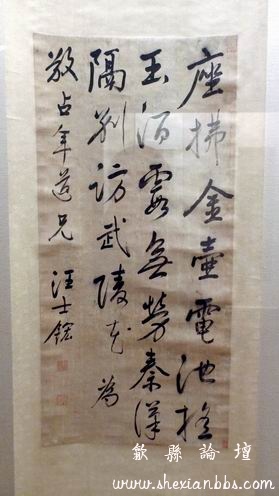 座拂金壺電池搖
玉酒霞無勞秦漢
隔別訪武陵花 為
敬占年道兄 汪士鋐
歙縣論壇
www.shexianbbs.com